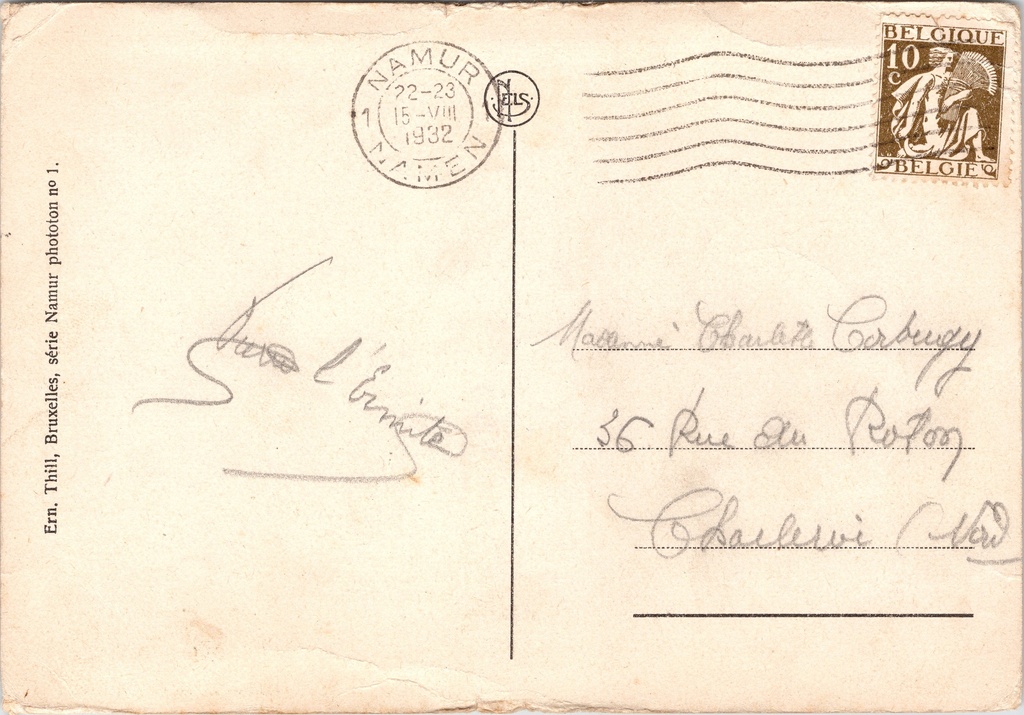 NAMUR
1 22-23 1
15-VIII
1932
NAMEN
NELS
BELGIQUE
10
C
BELGIE
Ern. Thill, Bruxelles, série Namur phototon nº 1.
l'Ermite
Charlotte
36 Rue du Roton
Charleroi (Nord